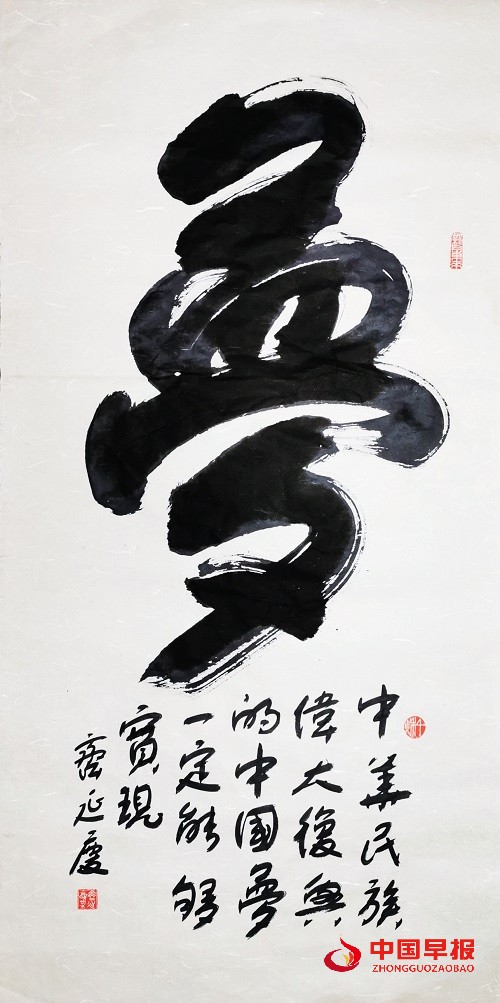 夢
中華民族
偉大復興
的中国夢
一定能够
實現
齊延慶
中国早报
ZHONGGUOZAOBAO